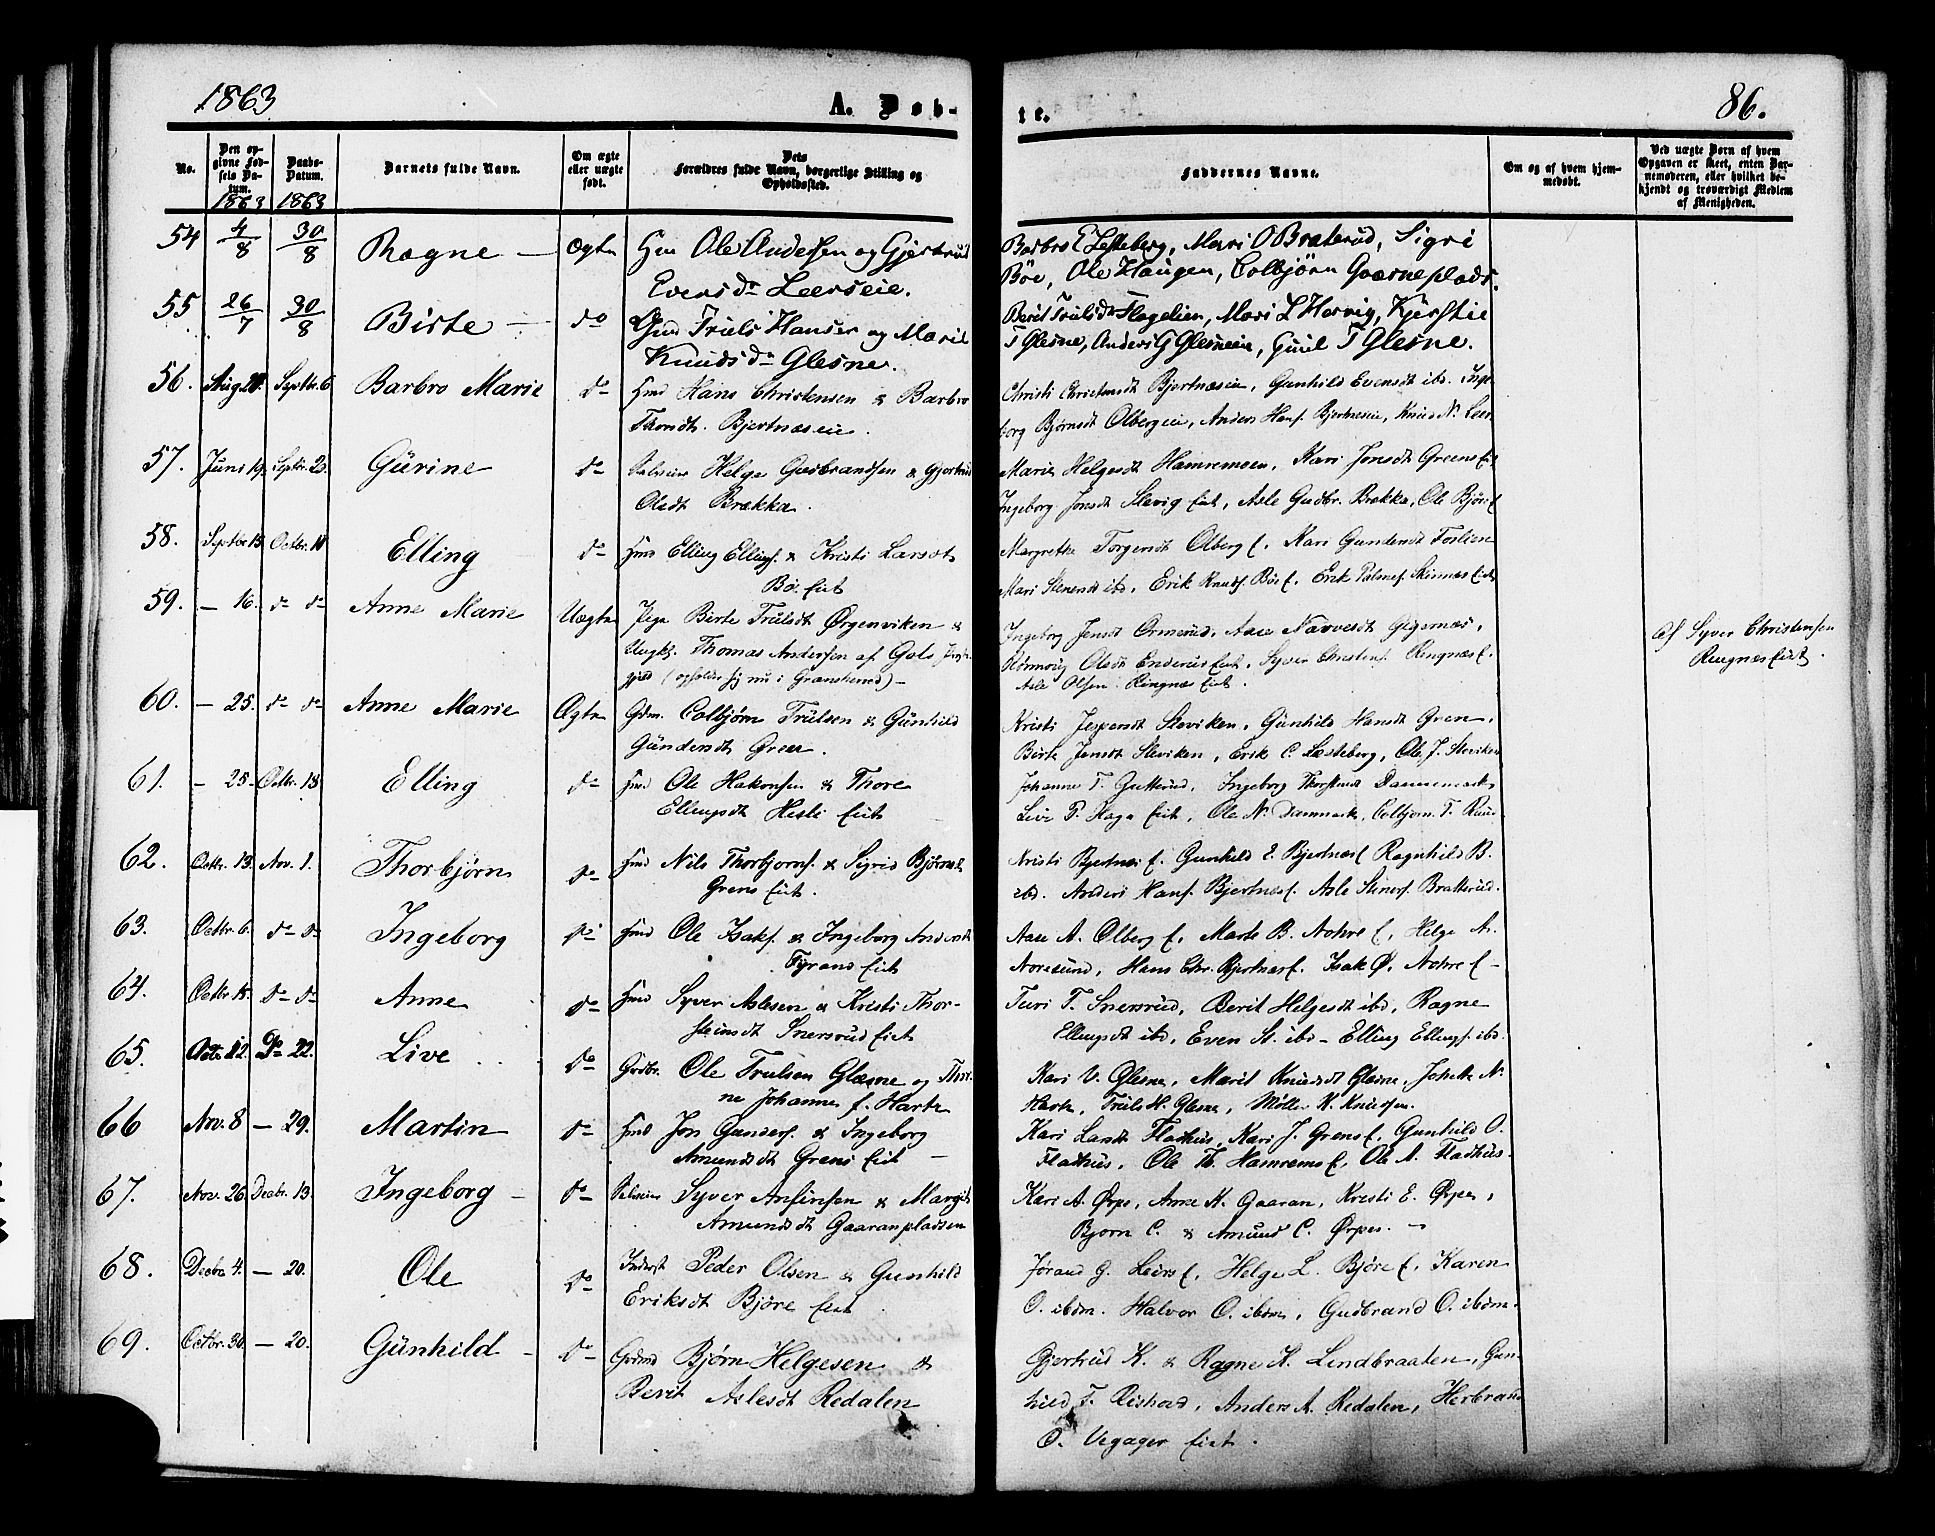 1863
A. Døb-
te.
86.
No.
Den op-
givne Fød-
sels Da-
tum.
1863
Daabs-
Datum.
1863
Barnets fulde Navn.
Om ægte
eller uægte
født.
Dets
Forældres fulde Navn, borgerlige Stilling og
Opholdssted.
Faddernes Navne.
Om og af hvem hjem-
medøbt.
Ved uægte Børn af hvem
Opgaven er skeet, enten Bar-
nemoderen, eller hvilket be-
kjendt og troværdigt Medlem
af Menigheden.
54 4/8 30/8 Ragne — Ægte Hm Ole Andersen og Gjertrud
Eversda Leerseie.
Barbro E Lesteberg, Mari O Braterud, Sigri
Böe, Ole Haugen, Colbjörn Gværneplads.
55 26/7 30/8 Birte — do Gm Truls Hansen og Marit
Knudsda Glesne.
Berit Trulsda Flagelien, Mari L Hervig, Kjerstie
T Glesne, Anders G Glesneeie, Guul T Glesne.
56. Aug 21. Septbr. 6 Barbro Marie do Hmd Hans Christensen & Barbro
Thorsdt. Bjertnæseie.
Christi Christensdt Bjertnæseie, Gunhild Evensdt ibd. Inge-
borg Bjørnsdt Olbergeie, Anders Hans. Bjertneseie, Knud N. Leer
57. Juni 19. Septbr. 20. Gürine do Helge Gudbrandsen & Gjertrud
Olsdt Brækka.
Marie Helgesdt Hamremoen, Kari Jonsdt Greens Eiet
Ingeborg Jonsdt Slevig Eiet, Asle Gudbr. Brækka, Ole Björe E
58. Septbr 15 Octbr. 11 Elling do Hmd Elling Ellings. & Kristi Larsdt
Bö. Eiet
Margrethe Torgersdt Olberg E. Kari Gundersdt Foslien
Mari Steensdt ibd, Erik Knuds. Böe E, Erik Palmes. Skinnes Eiet
59. — 16. do do Anne Marie Uægte Pige Birte Trülsdt Ørgenviken &
Ungk. Thomas Andersen af Gols Præste-
gjeld (opholder sig nu i Granshered) —
Ingeborg Jensdt Ormerud, Aase Narvesdt Gigernæs,
Olsdt Enderud Eiet, Syver Christens. Ringnæs E.
Asle Olsen. Ringnæs Eiet.
Af Syver Christensen
Ringnæs Eiet.
60. — 25. do do Anne Marie Ægte Gdm. Colbjørn Trülsen & Günhild
Gündersdt Gren.
Kristi Jespersdt Sleviken, Günhild Hansdt Gren,
Birte Jensdt Sleviken, Erik C. Læsteberg, Ole J. Sleviken
61. — 25. Octbr. 18 Elling do Hmd Ole Hakonsen & Thore
Ellingsdt Hesle Eiet
Johanne T. Gutterud, Ingeborg Thorstensd Dannemark,
Live P. Haga Eiet, Ole N. Danmark, Colbjörn T. Ruud
62. Octbr. 13. Nov. 1. Thorbjørn do Hmd Nils Thorbjørns. & Sigrid Björnsdt
Grens Eiet.
Kristi Bjertnæs E. Gunhild E. Bjertnæs E Ragnhild B.
ibd. Anders Hans. Bjertnæs E. Asle Steners. Bratterud.
63. Octbr. 6. do do Ingeborg do Hmd Ole Isaks. & Ingeborg Andersdt
Tyrand Eiet
Aase A. Olberg E. Marte B. Nohre E, Helge A.
Noresund, Hans Chr. Bjertnæs E. Isak Ø. Nohre E —
64. Octbr 15. do do Anne do Hmd Syver Aslesen & Kristi Thor-
steinsdt Snersrud Eiet
Turi T. Snersrud, Berit Helgesdt ibd, Ragne
Ellingsdt ibd, Even St. ibd — Elling Ellings. ibd.
65. Octbr 12. Do 22. Live do Grdbr. Ole Trulsen Glæsne og Thor-
ne Johannes E. Harte
Kari V. Glesne, Marit Knudsdt Glesne, N.
Harte, Trüls H. Glesne, Møller K. Knudsen.
66 Nov. 8 — 29. Martin do Hmd Jon Gunders. & Ingeborg
Amundsdt Grens Eiet —
Kari Flathus, Kari J. Grens E, Gunhild O.
Flathus, Ole Th. Hamrems E, Ole A. Flathus.
67. Nov. 26. Decbr. 13. Ingeborg — do Syver Ansteensen & Margit
Amundsdt Gaaranpladsen
Kari A. Ørpe, Anne K. Gaaran, Kristi E. Ørpen,
Bjørn C. & Amund C. Ørpen. —
68. Decbr 4. — 20. Ole do Inderst Peder Olsen & Gunhild
Eriksdt Björe Eiet
Jörand G. Leers E, Helge L. Björe E, Karen
O. ibdm. Halvor O. ibdm, Gudbrand O. ibdm.
69. Octbr. 30. — 20. Günhild — do Grdmd Bjørn Helgesen &
Berit Aslesdt Redalen
Gjertrud K. & Ragne K. Lindbraaten, Gun-
hild T. Rishovd, Anders A. Redalen, Herbrand
O. Vegager Eiet.